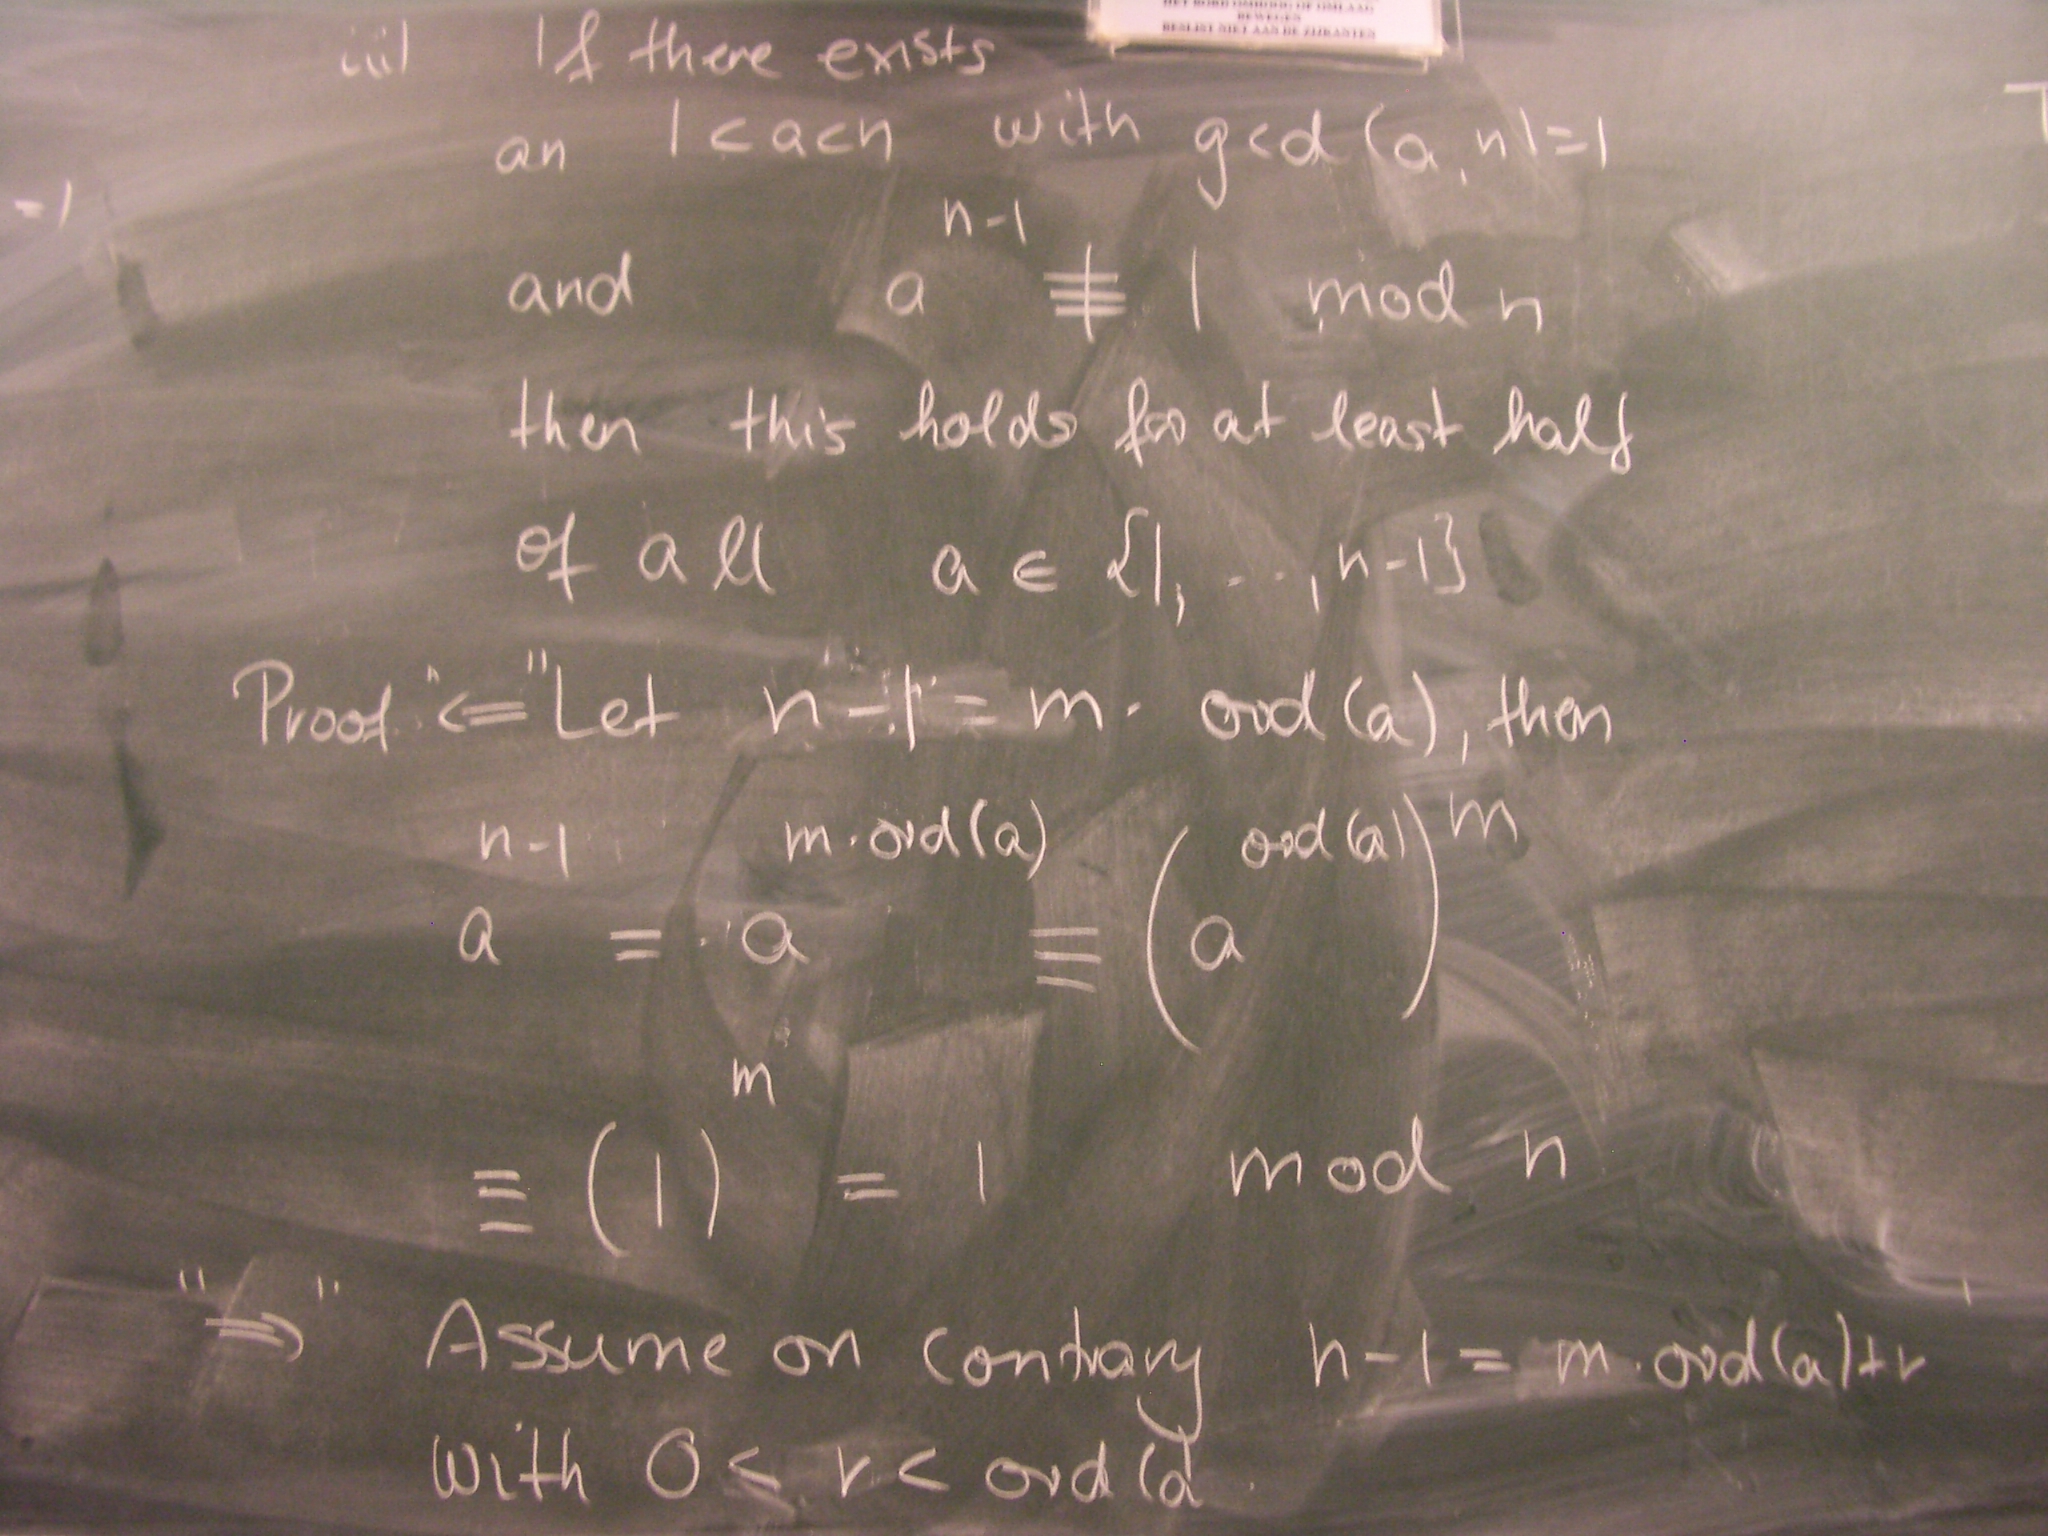 HET BORD OMHOOG OF OMLAAG
BEWEGEN
BESLIST NIET AAN DE ZIJKANTEN
iii) If there exists
an 1 < a < n with gcd(a, n) = 1
= 1
and a^{n-1} ≢ 1 mod n
then this holds for at least half
of all a ∈ {1, ..., n-1}
Proof "<=" Let n-1 = m · ord(a), then
a^{n-1} = a^{m·ord(a)} ≡ (a^{ord(a)})^m
≡ (1)^m = 1 mod n
"⇒" Assume on contrary n-1 = m·ord(a)+r
with 0 < r < ord(a